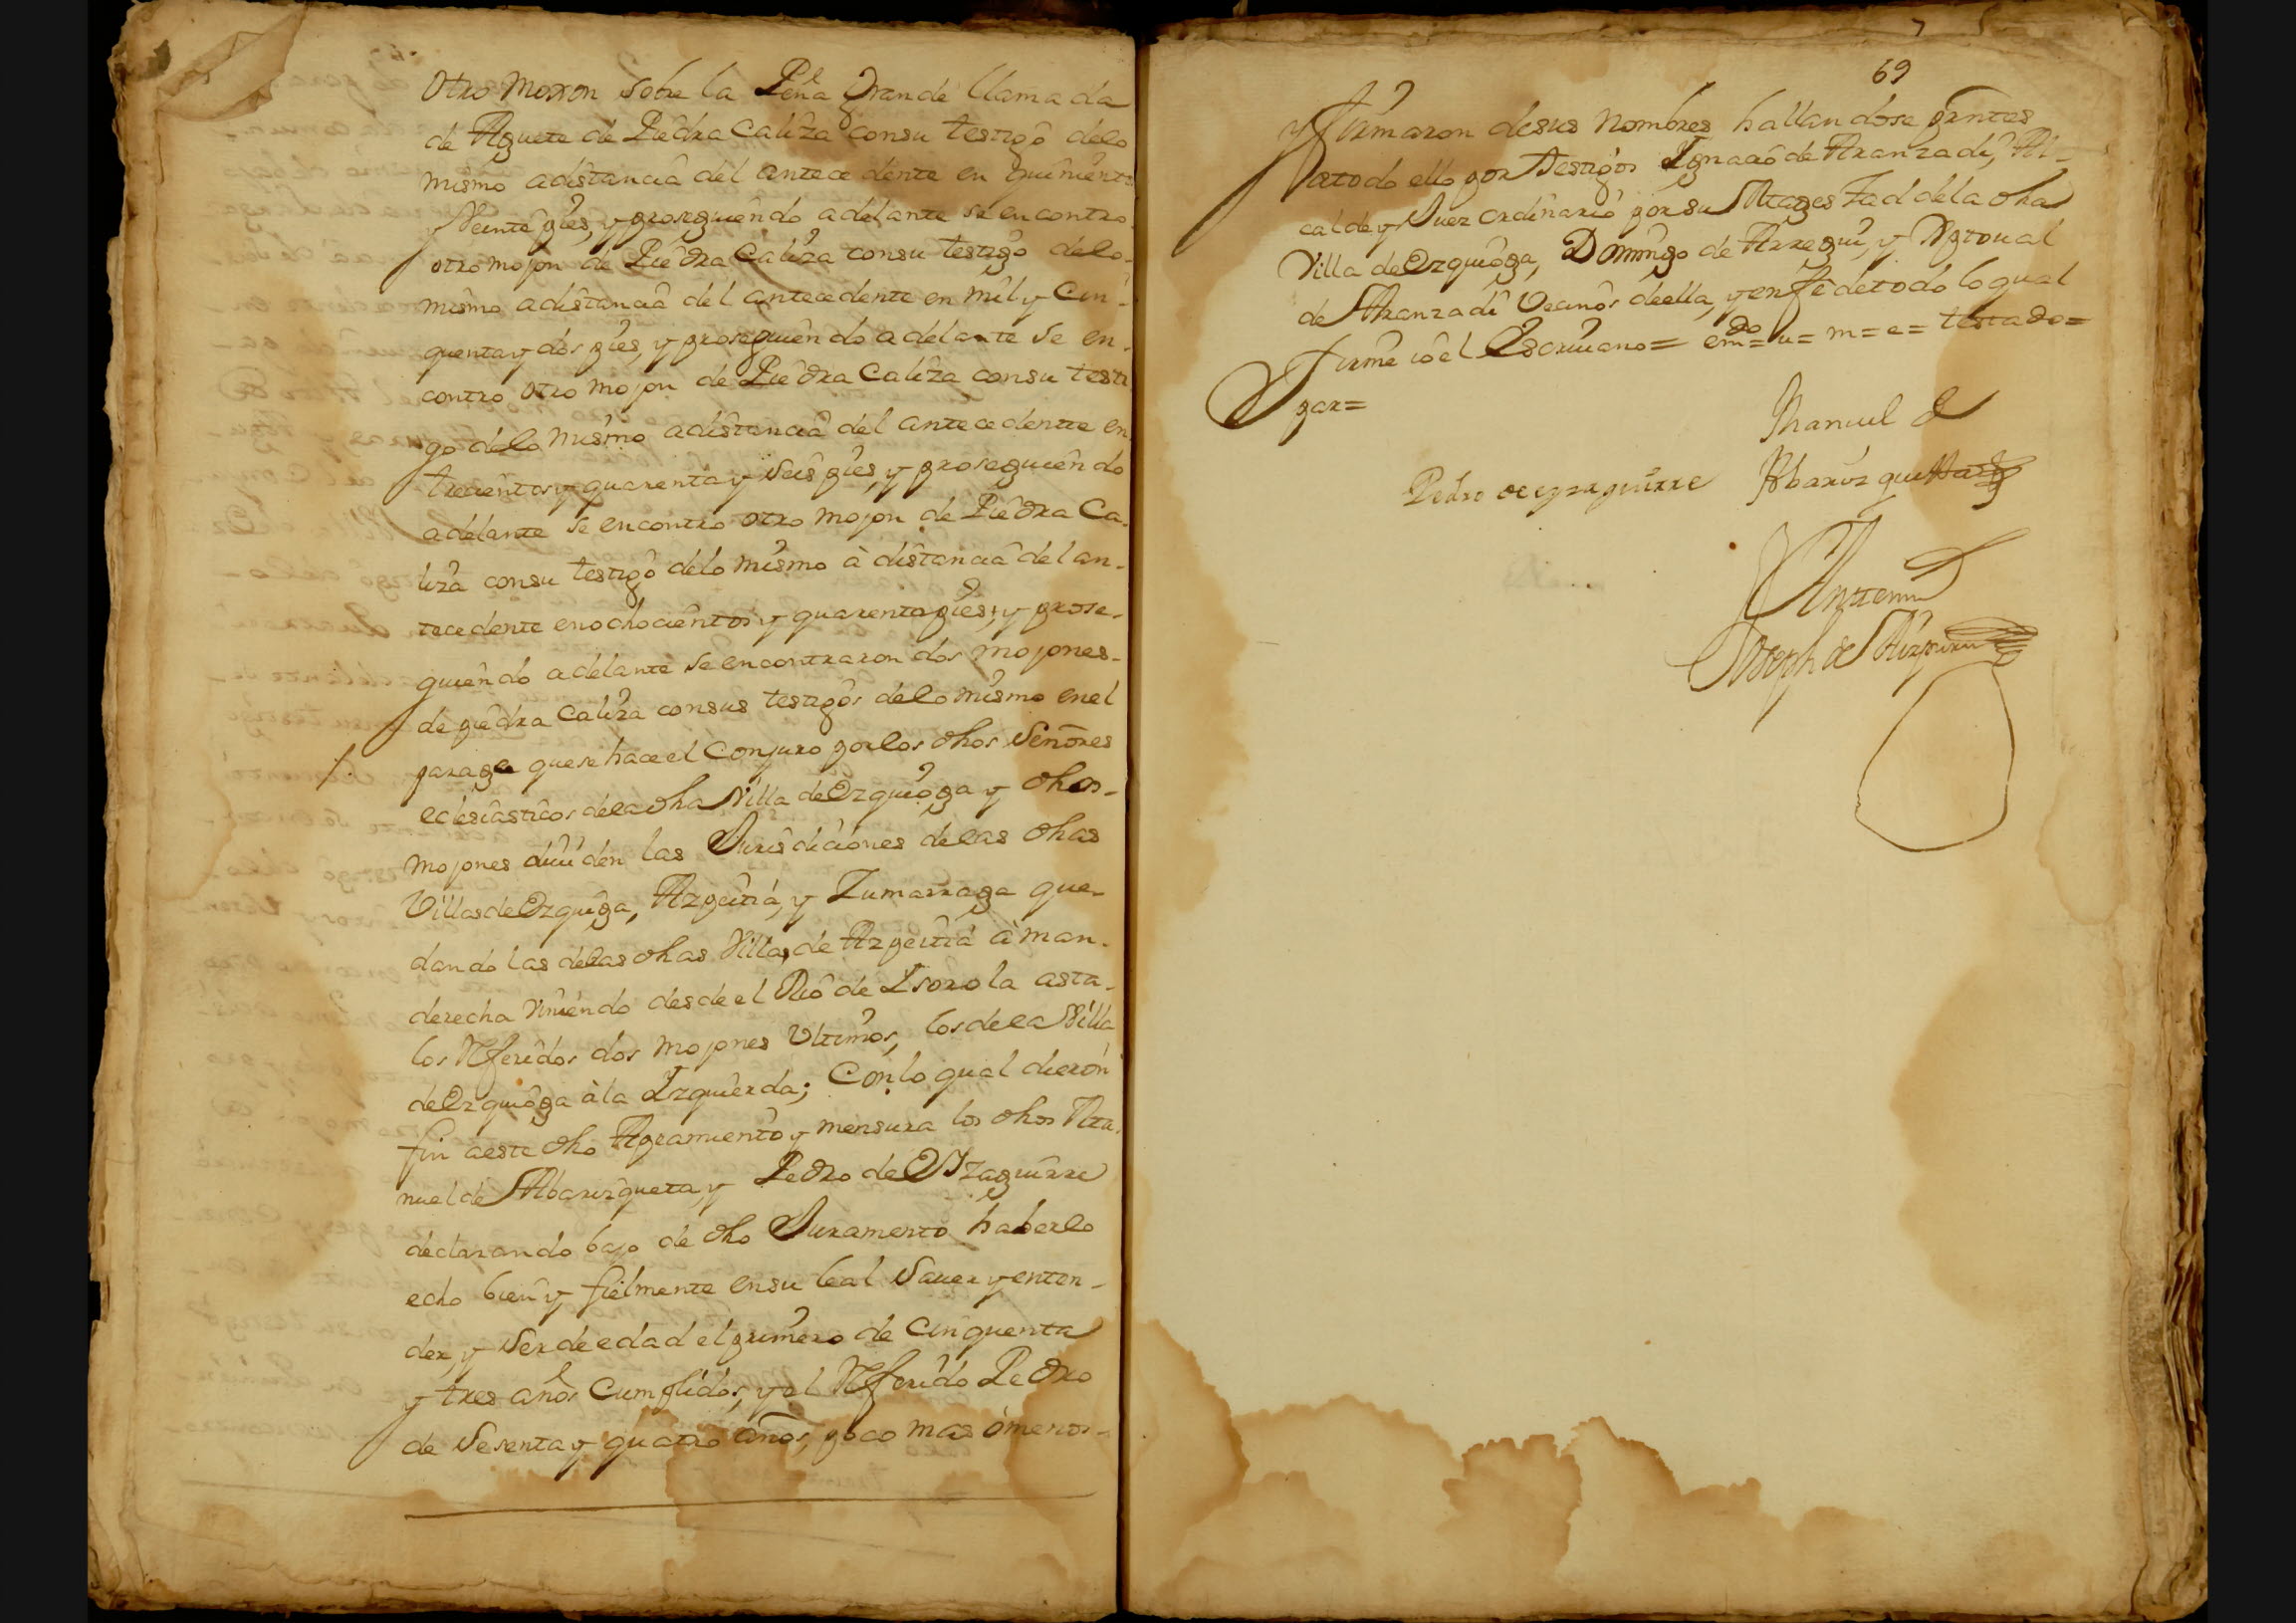 Otro Moxon sobre la Peña Grande llamada
de Aguete de Piedra Caliza consu testigo delo
mismo adistancia del antecedente en quinientos
Veinte pies, y prosiguiendo adelante se encontro
otro mojon de Piedra Caliza consu testigo delo
mismo adistancia del antecedente en mil y Cin-
quenta y dos pies, y prosequiendo adelante se en-
contro otro mojon de Piedra Caliza consu testi
go delo mismo adistancia del antecedentte en
trecientos y quarenta y seis pies, y prosequiendo
adelante se encontro otro mojon de Piedra Ca-
liza consu testigo delo mismo à distancia del an-
tecedente enochocientos y quarenta pies; y prose-
guiendo adelante se encontraron dos mojones-
de piedra caliza consus testigos delo mismo enel
parage quese hace el Conjuro porlos dhos Señores
eclesiasticos dela dha Villa de Ezquioga y dhos-
mojones diuiden las Jurisdiciones delas dhas
Villas de Ezquioga, Azpeitia, y Zumarraga que-
dando las delas dhas Villas de Azpeitia à man-
derecha viniendo desde el Rio de Lsorola asta-
los Rferidos dos mojones Ultimos, los dela Villa
de Ezquioga à la Izquierda; Con lo qual dieron
fin aeste dho Apeamiento y mensura los dhos Ma-
nuel de Albarizqueta, y Pedro de Eyzaguirre
declarando bajo de dho Juramento haberlo
echo bien y fielmente ensu leal Sauer y enten-
der, y Ser de edad el primero de cinquenta
y tres años Cumplidos, y el Rferido Pedro
de Sesenta y quatro años, poco mas ômenos-
69
y firmaron desus nombres hallandose prntes
atodo ello por testigos Ignacio de Aranzadi, Al-
calde y Juez ordinario por su Magestad dela dha
Villa de Ezquioga, Domingo de Arregui, y Xptoual
de Aranzadi Vecinos deella, y enfe detodo lo qual
firme io el Escriuano= emdo= u= m= e= testado=
par=
Manuel de
Pedro de eyzaguirre Albarizqueta
Ante mi
Joseph de Aizpuru